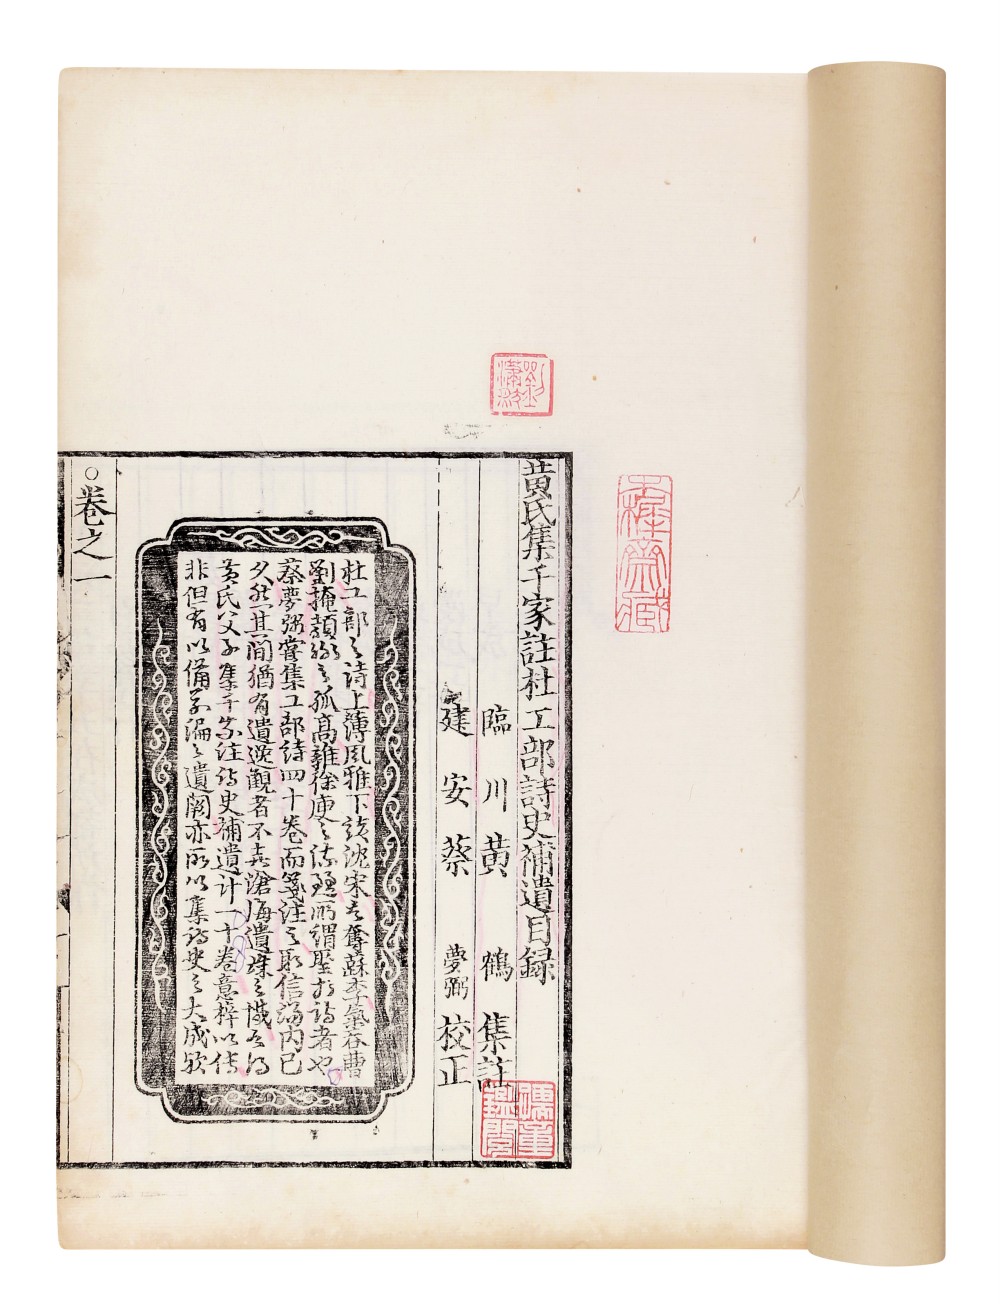 黄氏集千家註杜工部詩史補遺目録
臨川黄鶴集註
建安蔡夢弼校正
杜工部之詩上薄風雅下該沈宋言奪蘇李氣吞曹
劉掩顔謝之孤高雜徐庾之流麗所謂聖於詩者也
蔡夢弼嘗集工部詩四十卷而箋注之取信海内已
久然其間猶有遺逸觀者不无滄海遺珠之憾今得
黄氏父子集千家注詩史補遺計一十卷意梓以傳
非但有以備前編之遺闕亦所以集詩史之大成歟
○卷之一